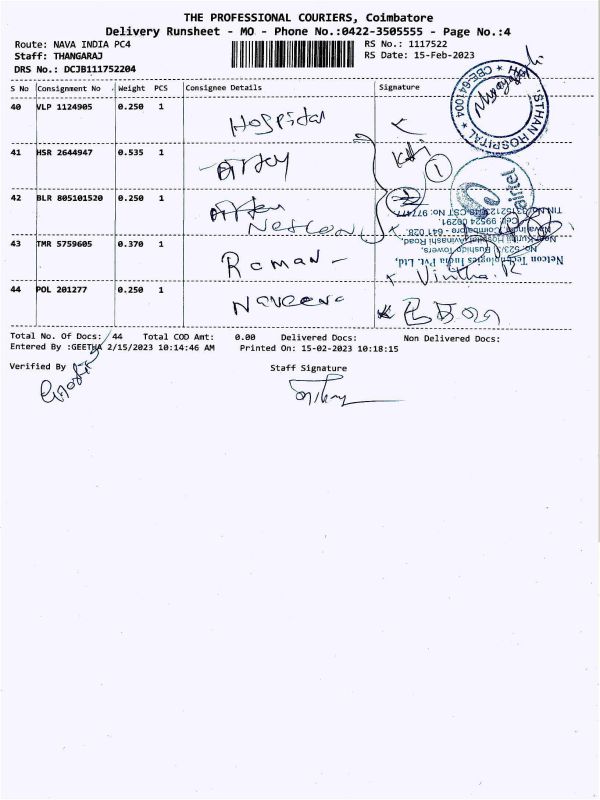 THE PROFESSIONAL COURIERS, Coimbatore
Delivery Runsheet - MO - Phone No.:0422-3505555 - Page No.:4
Route: NAVA INDIA PC4 RS No.: 1117522
Staff: THANGARAJ RS Date: 15-Feb-2023
DRS No.: DCJB111752204
S No Consignment No Weight PCS Consignee Details Signature
40 VLP 1124905 0.250 1 Hospital
41 HSR 2644947 0.535 1
42 BLR 805101520 0.250 1 Netcon
43 TMR 5759605 0.370 1 Raman
44 POL 201277 0.250 1 Naveena
STHAN HOSPITAL
CBE-641004
1
2
Netcon Technologies India Pvt. Ltd,
No. 523/3, Bushido Towers,
Near Kurinji Hospital, Avinashi Road,
Navaindia, Coimbatore - 641 028.
Cell: 99524 00291.
Total No. Of Docs: 44 Total COD Amt: 0.00 Delivered Docs: Non Delivered Docs:
Entered By :GEETHA 2/15/2023 10:14:46 AM Printed On: 15-02-2023 10:18:15
Verified By Staff Signature